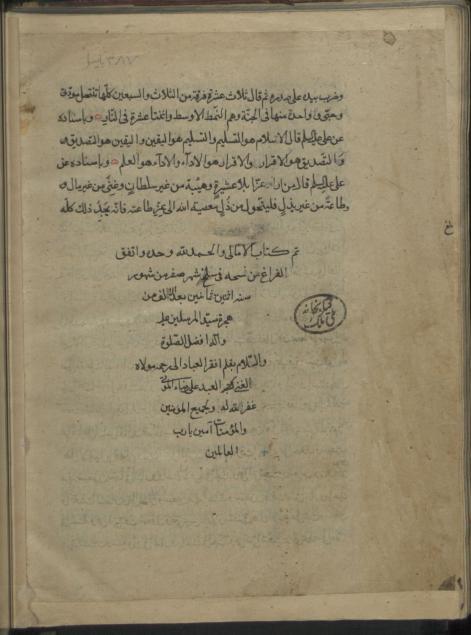 وضرب بيده على صدره ثم قال ثلاث عشرة فرقة من الثلاث والسبعين كلها تنتحل مودتى
وحبى واحدة منها فى الجنة وهم النمط الاوسط واثنتا عشرة فى النار وباسناده
عن على عليه السلم قال الاسلام هو التسليم والتسليم هو اليقين واليقين هو التصديق
والتصديق هو الاقرار والاقرار هو الاداء والاداء هو العلم وباسناده عن
على عليه السلم قال من اراد عزا بلا عشيرة وهيبة من غير سلطان وغنى من غير مال
وطاعة من غير بذل فليتحول من ذل معصية الله الى عز طاعته فانه يجد ذلك كله
تم كتاب الامالى والحمد لله وحده واتفق
الفراغ من نسخه فى سلخ شهر صفر من شهور
سنه اثنين ثمانين بعد الالف من
هجرة سيد المرسلين عليه
وآله افضل الصلوة
والسلام بقلم افقر العباد الى رحمة مولاه
الغنى العبد على
غفر الله له ولجميع المؤمنين
والمؤمنات آمين يا رب
العالمين
كتابخانه
ملى ملك